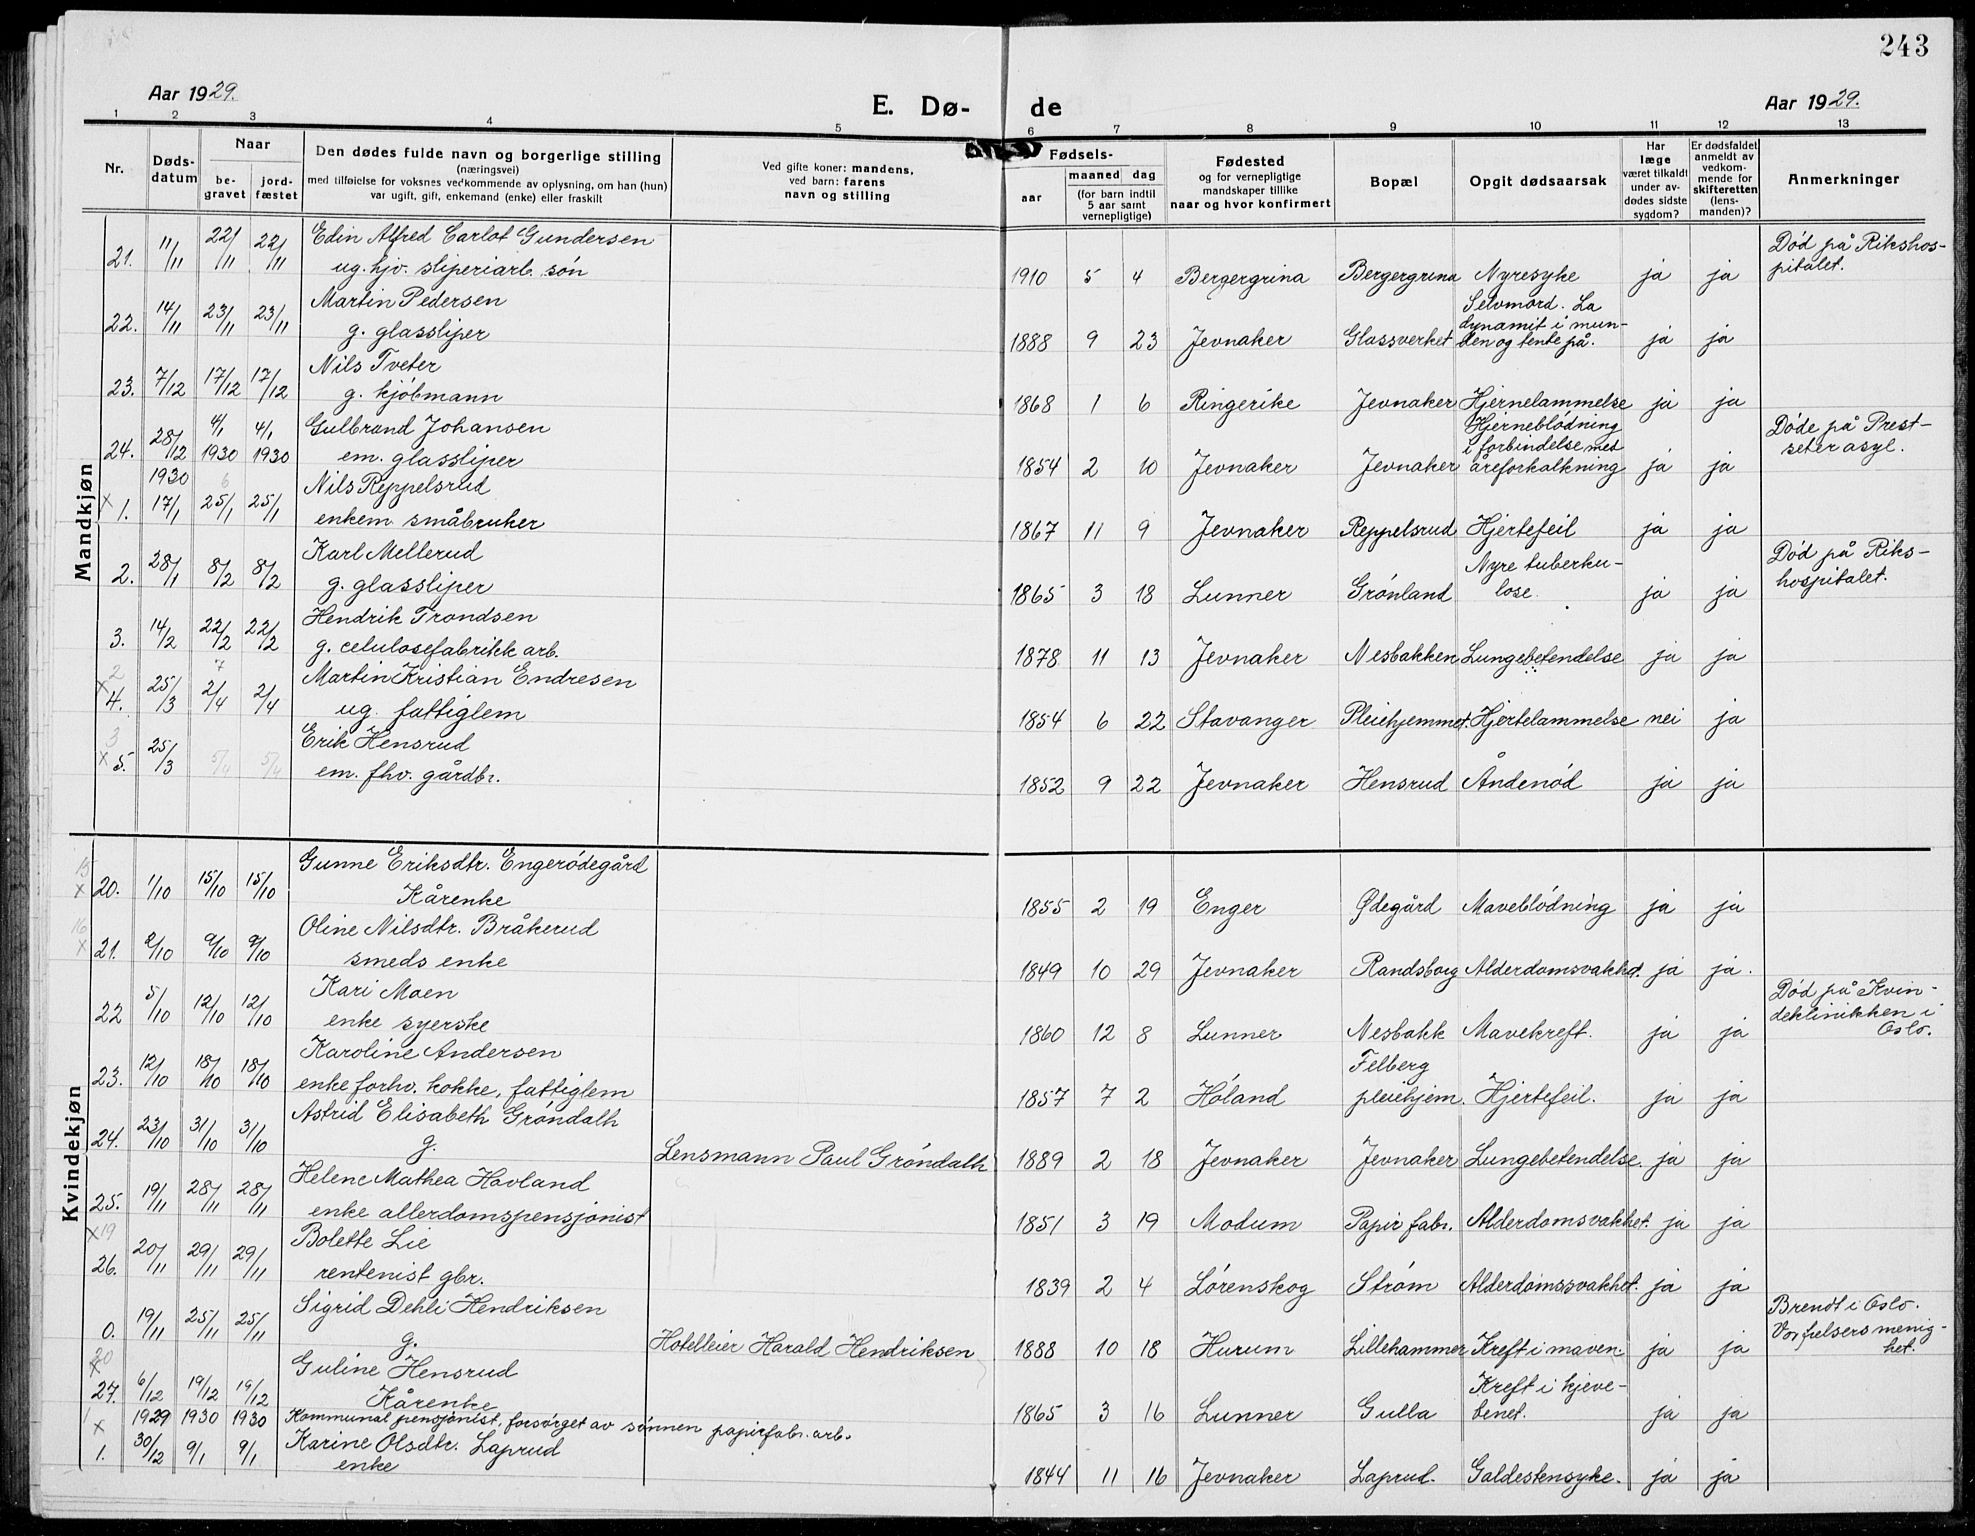 243
Aar 1929.
E. Dø- de
Aar 1929.
1 2 3 4 5 6 7 8 9 10 11 12 13
Nr.
Døds-
datum
Naar
be-
gravet
jord-
fæstet
Den dødes fulde navn og borgerlige stilling
(næringsvei)
med tilføielse for voksnes vedkommende av oplysning, om han (hun)
var ugift, gift, enkemand (enke) eller fraskilt
Ved gifte koner: mandens,
ved barn: farens
navn og stilling
Fødsels-
aar
maaned dag
(for barn indtil
5 aar samt
vernepligtige)
Fødested
og for vernepligtige
mandskaper tillike
naar og hvor konfirmert
Bopæl
Opgit dødsaarsak
Har
læge
været tilkaldt
under av-
dødes sidste
sygdom?
Er dødsfaldet
anmeldt av
vedkom-
mende for
skifteretten
(lens-
manden)?
Anmerkninger
Mandkjøn
21. 11/11 22/11 22/11 Edin Alfred Carlot Gundersen
ug. hjv. sliperiarb. søn
1910 5 4 Bergergrina Bergergrina Nyresyke ja ja
Død på Rikshos-
pitalet.
22. 14/11 23/11 23/11 Martin Pedersen
g. glassliper
1888 9 23 Jevnaker Glassverket
Selvmord. La
dynamit i mun-
den og tente på. ja ja
23. 7/12 17/12 17/12 Nils Tveter
g. kjøbmann
1868 1 6 Ringerike Jevnaker Hjernelammelse ja ja
24. 28/12 4/1 1930 4/1 1930 Gulbrand Johansen
em. glassliper
1854 2 10 Jevnaker Jevnaker
Hjerneblødning
i forbindelse med
åreforkalkning ja ja
Døde på Prest-
seter asyl.
1930 6
x 1. 17/1 25/1 25/1 Nils Reppelsrud
enkem. småbruker
1867 11 9 Jevnaker Reppelsrud Hjertefeil ja ja
2. 28/1 8/2 8/2 Karl Mellerud
g. glassliper
1865 3 18 Lunner Grønland
Nyre tuberku-
lose. ja ja
Død på Riks-
hospitalet.
3. 14/2 22/2 22/2 Hendrik Trondsen
g. celulosefabrikk arb.
1878 11 13 Jevnaker Nesbakken Lungebetendelse ja ja
2 7
x 4. 25/3 2/4 2/4 Martin Kristian Endresen
ug. fattiglem
1854 6 22 Stavanger Pleiehjemmet. Hjertelammelse nei ja
3
x 5. 25/3 5/4 5/4 Erik Hensrud
em. fhv. gårdbr.
1852 9 22 Jevnaker Hensrud Åndenød ja ja
Kvindekjøn
15
x 20. 1/10 15/10 15/10 Gunne Eriksdtr. Engerødegård
Kårenke
1855 2 19 Enger Ødegård Maveblødning ja ja
16
x 21. 2/10 9/10 9/10 Oline Nilsdtr. Bråkerud
smeds enke
1849 10 29 Jevnaker Randsborg Alderdomsvakhet. ja ja.
22 5/10 12/10 12/10 Kari Moen
enke syerske
1860 12 8 Lunner Nesbakk Mavekreft. ja ja
Død på Kvin-
deklinikken i
Oslo.
23. 12/10 18/10 18/10 Karoline Andersen
enke forhv. kokke, fattiglem
1857 7 2 Høland
Felberg
pleiehjem. Hjertefeil. ja ja
24. 23/10 31/10 31/10 Astrid Elisabeth Grøndalh
g. Lensmann Paul Grøndalh
1889 2 18 Jevnaker Jevnaker Lungebetendelse. ja ja
25. 19/11 28/11 28/11 Helene Mathea Hovland
enke allerdomspensjonist
1851 3 19 Modum Papir fabr. Alderdomsvakhet. ja ja
x 19
26. 20/11 29/11 29/11 Bolette Lie
rentenist gbr.
1839 2 4 Lørenskog Strøm Alderdomssvakhet. ja ja
0. 19/11 25/11 25/11 Sigrid Dehli Hendriksen
g. Hotelleier Harald Hendriksen
1888 10 18 Hurum Lillehammer Kreft i maven. ja ja
Brendt i Oslo.
Vor frelsers menig-
het.
20
x
27. 6/12 19/12 19/12 Guline Hensrud
Kårenke
1865 3 16 Lunner Gulla
Kreft i kjeve-
benet. ja ja
1929 1930 1930 Kommunal pensjonist, forsørget av sønnen papirfabr. arb.
x
1. 30/12 9/1 9/1 Karine Olsdtr. Laprud
enke
1844 11 16 Jevnaker Laprud. Galdestensyke. ja ja